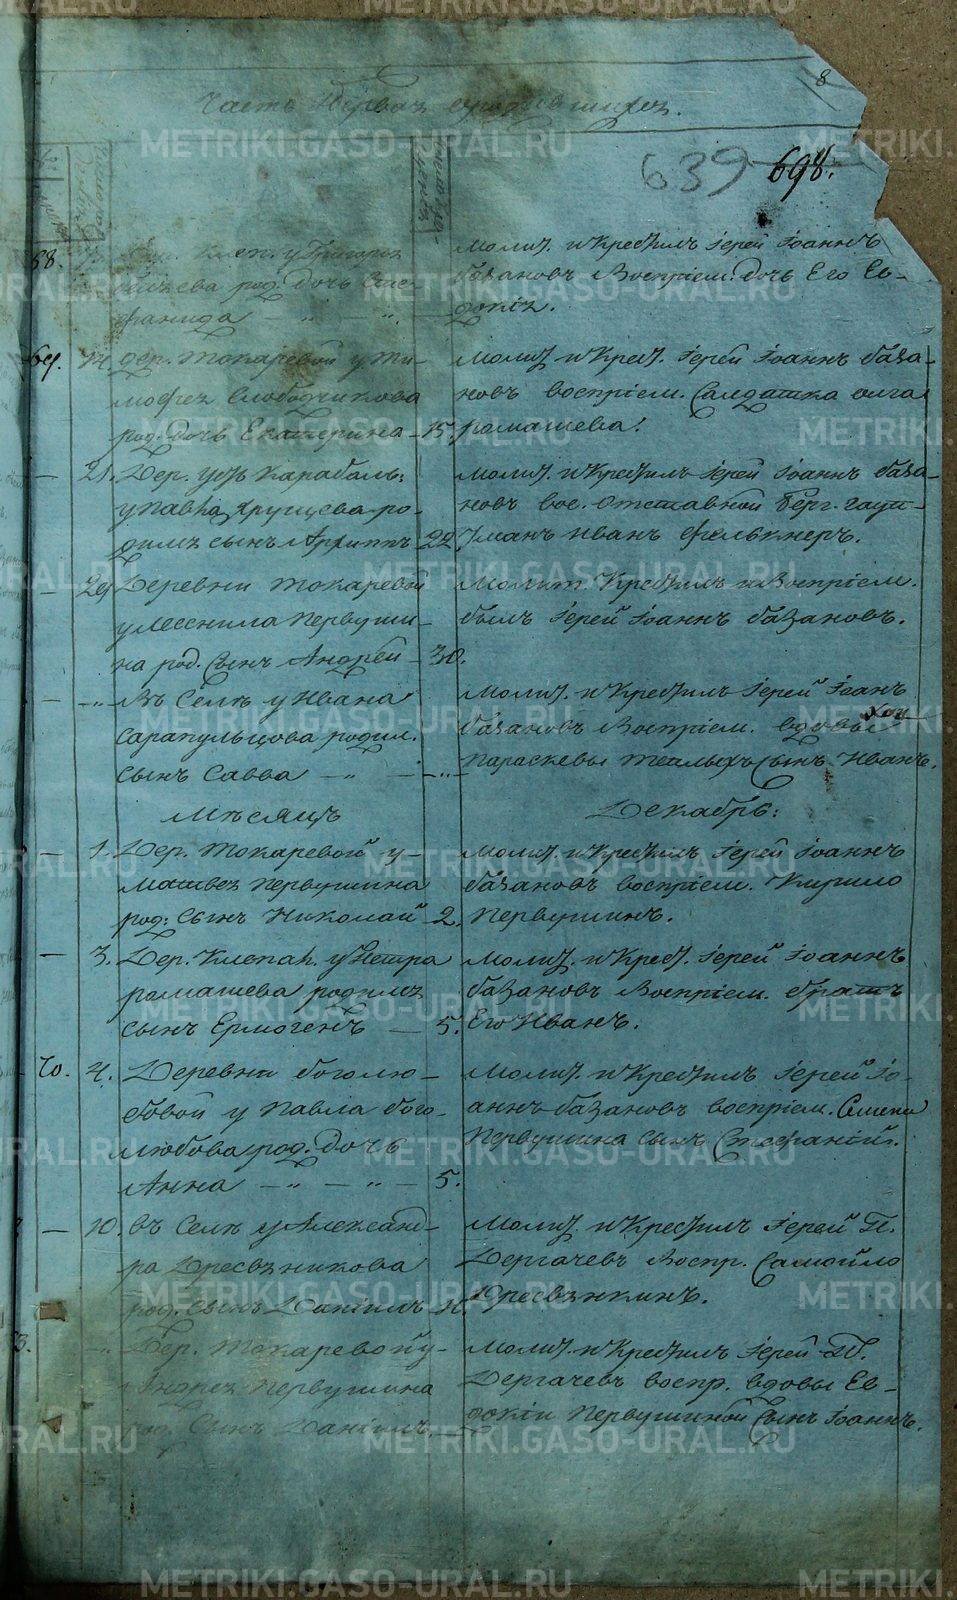 8
Часть Первая о родившихся.
639 698.
68.
у Григорья
род. Дочь Сте-
фанида
Молит. и Крестилъ Іерей Іоаннъ
базановъ Воспріем. Дочь Его Ев-
докія.
69. 14. дер. Токаревой у Ти-
мофея Слободчикова
род. дочь Екатерина 15.
Молит. и Крест. Іерей Іоаннъ база-
новъ воспріем. Салдатка олга
ромашева.
21. Дер. усть Карабаль:
у Павла
димъ сынъ Архиппъ 22.
Молит. и Крестилъ Іерей Іоаннъ база-
новъ вос. Отставной берг. гаупт-
манъ Иванъ
29 Деревни Токаревой
Первуши-
на род. Сынъ Андрей 30.
Молит. Крестилъ и Воспріем.
былъ Іерей Іоаннъ базановъ.
Въ Селѣ у Ивана
Сарапульцова родил.
сынъ Савва
Молит. и Крестилъ Іерей Іоанъ
базановъ Воспріем. вдовы
Параскевы Теплыхъ Сынъ Иванъ.
Мѣсяцъ Декабрь:
1. Дер. Токаревой у
Матвея Первушина
род: Сынъ Николай 2.
Молит. и Крестилъ Іерей Іоаннъ
базановъ воспріем. Кирило
Первушинъ.
3. Дер. Клепал. у Петра
ромашева родилъ
сынъ Ермогенъ 5.
Молит. и Крест. Іерей Іоаннъ
базановъ Воспріем. братъ
Его Иванъ.
70. 4. Деревни боголю-
бовой у Павла бого-
любова род. Дочь
Анна 5.
Молит. и Крестилъ Іерей Іо-
аннъ базановъ воспріем. Семена
Первушина сынъ
10. въ Селѣ у Александ-
ра Дресвянникова
род. сынъ Даніилъ
Молит. и Крестилъ Іерей П.
Дергачевъ Воспр. Самойло
Дресвянкинъ.
Дер. Токаревой у
Андрея Первушина
Сынъ Даніилъ
Молит. и Крестилъ Іерей П.
Дергачевъ воспр. вдовы Ев-
докіи Первушиной Сынъ Іоаннъ.
METRIKI.GASO-URAL.RU